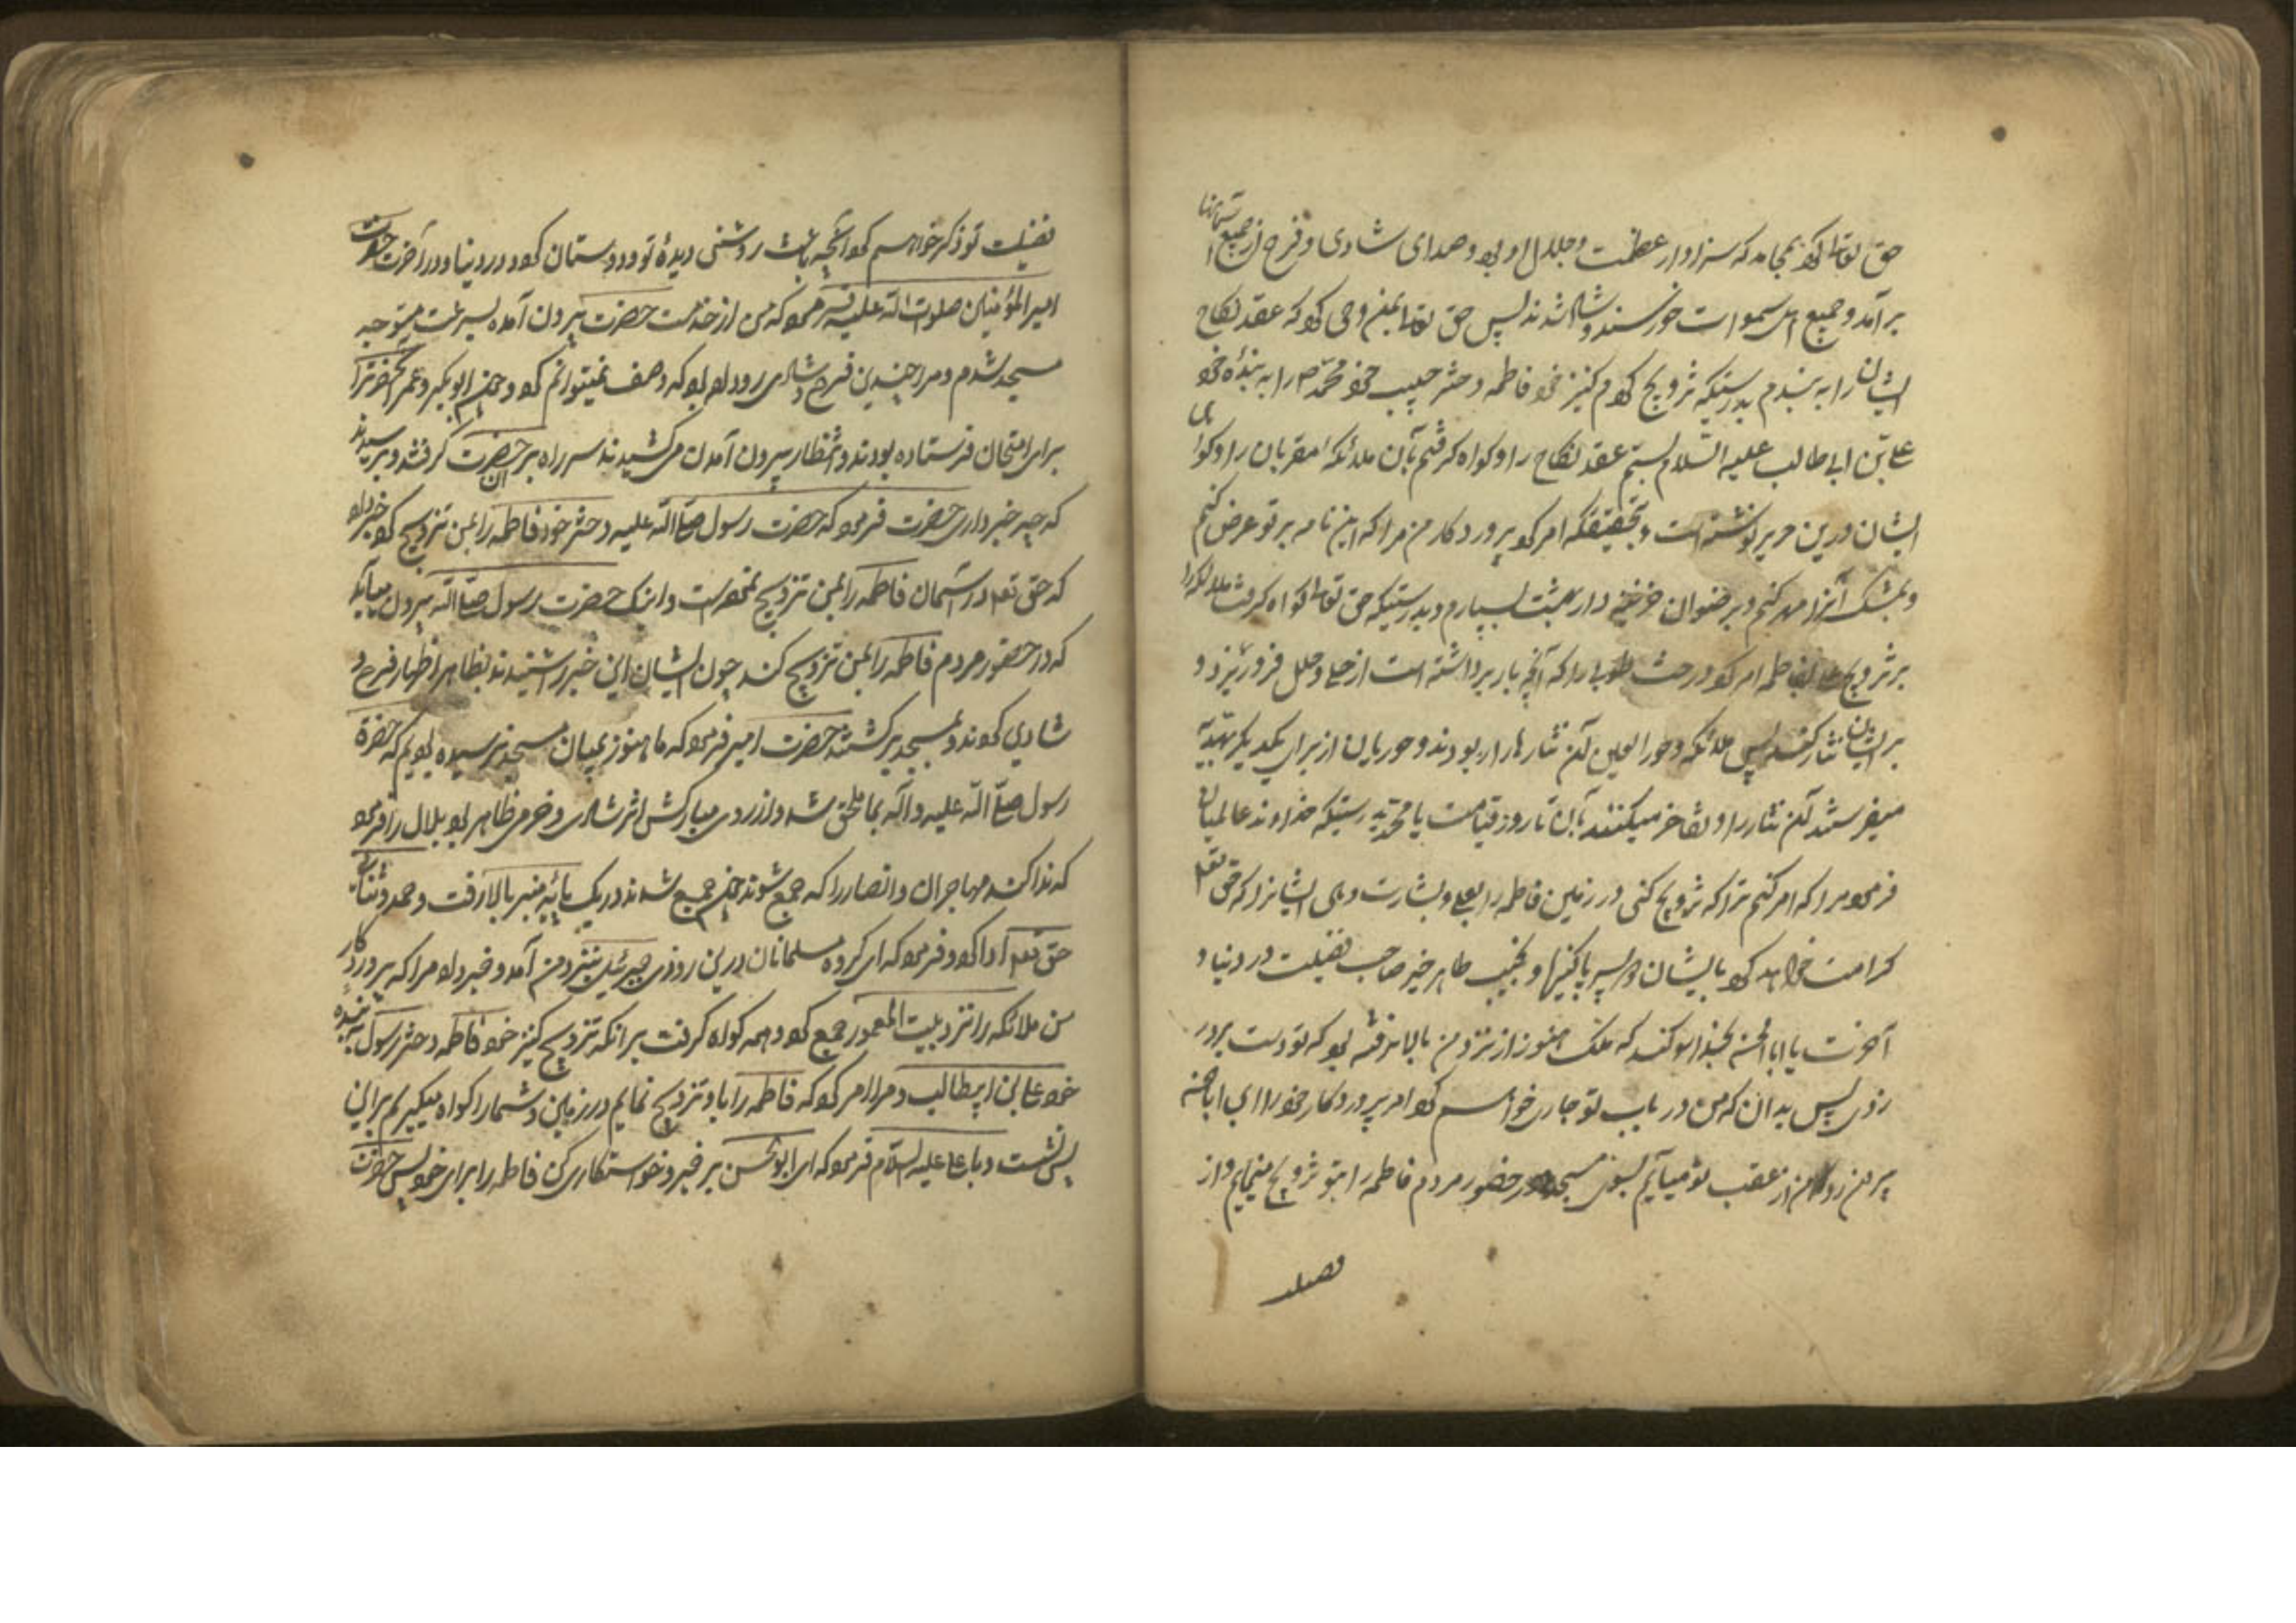 حق تعالی کرد بمحامد که سزاوار عظمت و جلال او بود و صدای شادی و فرح از جمیع آسمانها
برآمد و جمیع اهل سموات خورسند و شاد شدند پس حق تعالی بمن وحی کرد که عقد نکاح
ایشان را به بندم بدرستیکه تزویج کردم کنیز خود فاطمه دختر حبیب خود محمد ص را به بنده خود
علی بن ابی طالب علیه السلام بستم عقد نکاح را و کواه کرفتم بآن ملائکه مقربان را و کواهی
ایشان درین حریر نوشته است و بتحقیقکه امر کرد پروردکار من مرا که این نامه بر تو عرض کنم
و بمشک آنرا مهر کنم و برضوان خزینه دار بهشت بسپارم و بدرستیکه حق تعالی کواه کرفت ملائکه را
بر تزویج علی بفاطمه امر کرد درخت طوبی را که آنچه بار برداشته است از حلی و حلل فرو ریزد و
بر ایشان نثار کند پس ملائکه و حور العین آن نثارها را ربودند و حوریان از برای یکدیکر بهدیه
میفرستند آن نثار را و تفاخر میکنند بآن تا روز قیامت یا محمد بدرستیکه خداوند عالمیان
فرمود مرا که امر کنم ترا که تزویج کنی در زمین فاطمه را بعلی و بشارت دهی ایشانرا که حق تعم
کرامت خواهد کرد بایشان دو پسر پاکیزه و نجیب طاهر خیر صاحب فضیلت در دنیا و
آخرت یا ابا الحسن بخدا سوکند که ملک هنوز از نزد من بالا نرفته بود که تو دست بر در
زدی پس بدان که من در باب تو جاری خواهم کرد امر پروردکار خود را ای ابا الحسن
بیرون رو که من از عقب تو میآیم بسوی مسجد و در حضور مردم فاطمه را بتو تزویج مینمایم و از
فضیلت
فضیلت تو ذکر خواهم کرد آنچه باعث روشنی دیده تو و دوستان کرد در دنیا و در آخرت حضرت
امیر المؤمنین صلوات الله علیه فرمود که من از خدمت حضرت بیرون آمده بسرعت متوجه
مسجد شدم و مرا چندین فرح و شادی رو داده بود که وصف نمیتوانم کرد و چون ابو بکر و عمر آنحضرترا
برای امتحان فرستاده بودند و انتظار بیرون آمدن میکشیدند سر راه بر آن حضرت کرفتند و پرسیدند
که چه خبر داری حضرت فرمود که حضرت رسول صلی الله علیه دختر خود فاطمه را بمن تزویج کرد و خبر داد
که حق تعم در آسمان فاطمه را بمن تزویج نموده است و اینک حضرت رسول صلی الله بیرون میآید
که در حضور مردم فاطمه را بمن تزویج کند چون ایشان این خبر را شنیدند بظاهر اظهار فرح و
شادی کردند و بمسجد برکشتند حضرت امیر فرمود که ما هنوز بمیان مسجد نرسیده بودیم که حضرة
رسول صلی الله علیه و آله بما ملحق شد و از روی مبارکش اثر شادی و خرمی ظاهر بود بلال را فرمود
که ندا کند مهاجران و انصار را که جمع شوند چون جمع شدند در یک پایه منبر بالا رفت و حمد و ثنای
حق تعم ادا کرد و فرمود که ای کروه مسلمانان درین روزی جبرئیل بنزد من آمد و خبر داد مرا که پروردکار
من ملائکه را نزد بیت المعمور جمع کرد و همه کواه کرفت بر انکه تزویج کنیز خود فاطمه دختر رسول به بنده
خود علی بن ابیطالب و مرا امر کرد که فاطمه را باو تزویج نمایم در زمین و شما را کواه میکیرم برین
پس نشست و با علی علیه السلام فرمود که ای ابو الحسن برخیز و خواستکاری کن فاطمه را برای خود پس حضرت